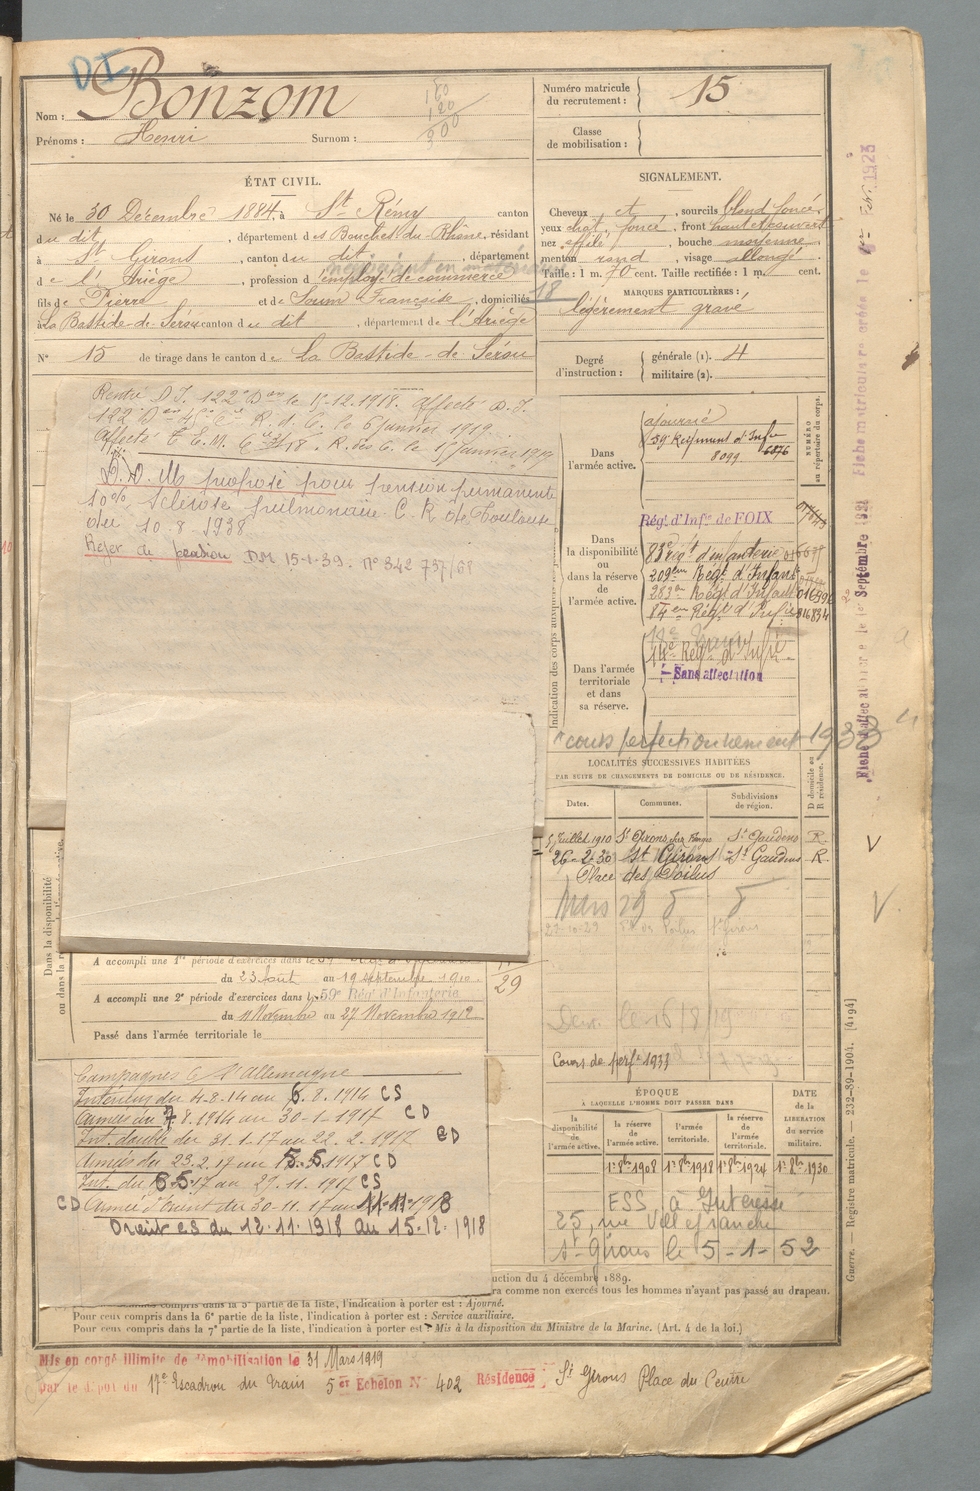 DI
Nom : Bonzom
Prénoms : Henri Surnom :
160
120
300
Numéro matricule du recrutement : 15
Classe de mobilisation :
ÉTAT CIVIL.
Né le 30 Décembre 1884, à St Rémy canton
du dit, département des Bouches du Rhône, résidant
à St Girons, canton du dit, département
de l'Ariège, profession d'employé de commerce
fils de Pierre et de Soum Françoise, domiciliés
à La Bastide-de-Sérou canton du dit, département de l'Ariège
18
N° 15 de tirage dans le canton de La Bastide-de-Sérou
SIGNALEMENT.
Cheveux et, sourcils blond foncé
yeux chat. foncé, front haut découvert
nez effilé, bouche moyenne
menton rond, visage allongé
Taille : 1 m. 70 cent. Taille rectifiée : 1 m. cent.
MARQUES PARTICULIÈRES :
légèrement gravé
Degré d'instruction : générale (1). 4
militaire (2).
Rentré D.I. 122e Don le 15-12.1918. Affecté D.I.
122 Don R. d. C. le 6 janvier 1919.
Affecté T.E.M. R. du C. le 15 Janvier 1919
D.D. M proposé pour pension permanente
10% Sclérose pulmonaire C.R de Toulouse
du 10.8-1938
Rejet de pension DM 15-1-39. N° 342 737/68
Dans l'armée active.
ajourné
59e Régiment d'Infie
8099 6876
NUMÉRO au répertoire du corps.
Indication des corps auxquels
Dans la disponibilité ou dans la réserve de l'armée active.
Régt d'Infie de FOIX
83e régt d'infanterie
209em Regt d'Infant
283em Regt d'Infant 016996
84em Régt d'Infie 016834
Dans l'armée territoriale et dans sa réserve.
14e Régt d'Infie
Sans affectation
cours perfectionnement 1933
LOCALITÉS SUCCESSIVES HABITÉES
PAR SUITE DE CHANGEMENTS DE DOMICILE OU DE RÉSIDENCE.
Dates. Communes. Subdivisions de région. D domicile ou R résidence.
5 Juillet 1910 St Girons St Gaudens R
26-2-30 St Girons St Gaudens R.
Place des Poilus
Mars 29
le 16/8/19
Cours de perft 1933
Dans la disponibilité
A accompli une 1re période d'exercices dans le 59
du 23 Août au 19 septembre 1910
A accompli une 2e période d'exercices dans le 59e Régt d'Infanterie
du 11 Novembre au 27 Novembre 1912
29
Passé dans l'armée territoriale le
Campagnes C. l'Allemagne
Intérieur du 4-8-14 au 6.8.1914 CS
Armées du 7.8.1914 au 30-1-1917 CD
Int. double du 31.1-17 au 22.2.1917 CD
Armées du 23.2.17 au 5.5.1917 CD
Int. du 6 5.17 au 29.11.1917 CS
CD Armée d'Orient du 30-11.17 au 11-11-1918
Orient CS du 12.11.1918 au 15-12-1918
ÉPOQUE
À LAQUELLE L'HOMME DOIT PASSER DANS
la disponibilité de l'armée active.
la réserve de l'armée active.
l'armée territoriale.
la réserve de l'armée territoriale.
DATE de la LIBÉRATION du service militaire.
1er 8bre 1908 1er 8bre 1918 1er 8bre 1924 1er 8bre 1930
ESS à Intéressé
25, rue Villefranche
St-Girons le 5-1-52
uction du 4 décembre 1889.
ra comme non exercés tous les hommes n'ayant pas passé au drapeau.
compris dans la 5e partie de la liste, l'indication à porter est : Ajourné.
Pour ceux compris dans la 6e partie de la liste, l'indication à porter est : Service auxiliaire.
Pour ceux compris dans la 7e partie de la liste, l'indication à porter est : Mis à la disposition du Ministre de la Marine. (Art. 4 de la loi.)
Mis en congé illimité de démobilisation le 31 Mars 1919
par le dépôt du 17e Escadron du Train 5e Echelon N° 402 Résidence St Girons Place du Centre
Guerre. — Registre matricule. — 232-89-1904. [4194]
Fiche matricule re créée le 1er Fév. 1923